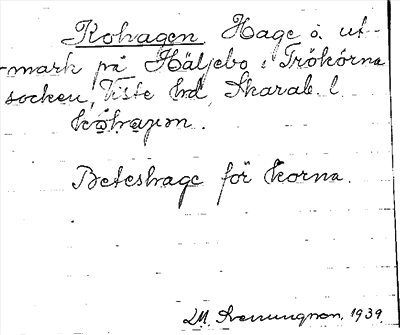 Kohagen. Hage å ut-
-mark på Häljebo i Trökörna
socken, Viste hd, Skarab. l
kōhaɡ̵ən.
Beteshage för korna.
LM. Svenungson. 1939